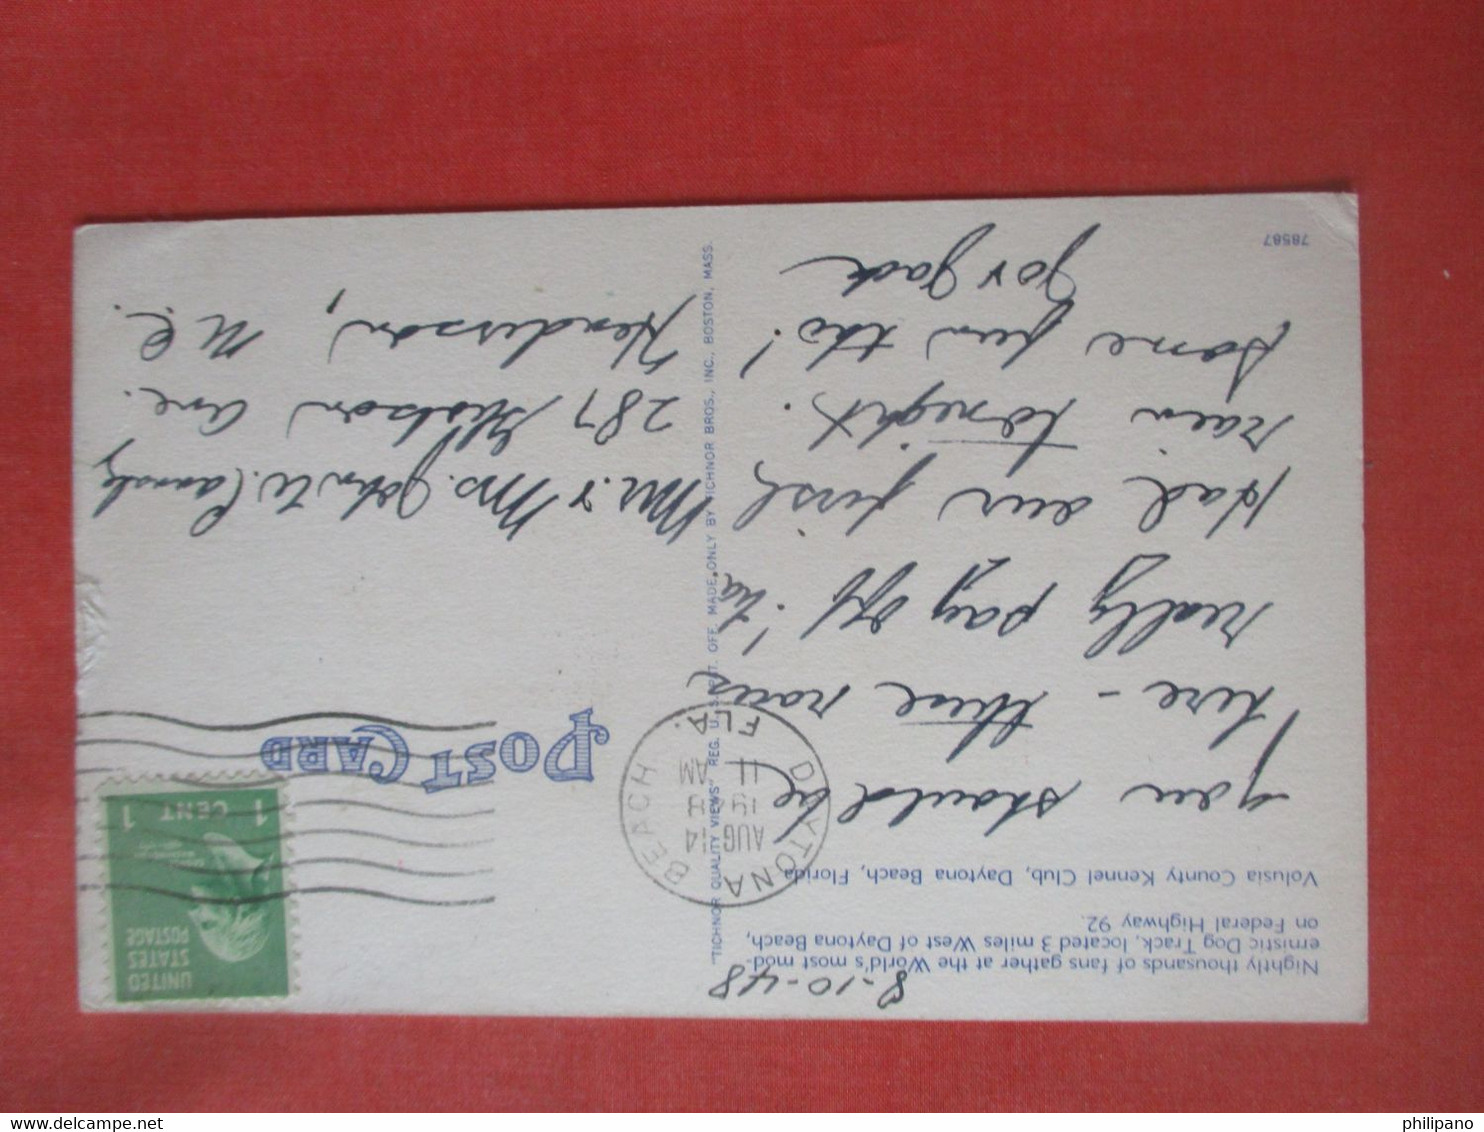 8-10-48
Nightly thousands of fans gather at the World's most mod-
ernistic Dog Track, located 3 miles West of Daytona Beach,
on Federal Highway 92.
Volusia County Kennel Club, Daytona Beach, Florida
You should be
here - these races
really pay off! ha
Had our first
rain tonight.
Some fun tho!
Jo & Jack
78587
"TICHNOR QUALITY VIEWS" REG. U. S. PAT. OFF. MADE ONLY BY TICHNOR BROS., INC., BOSTON, MASS.
POST CARD
DAYTONA BEACH
AUG 14
1948
11 AM
FLA.
UNITED
STATES
POSTAGE
1 CENT 1
Mr. & Mrs. John W.
287 Ave.
Henderson,
N.C.
philipano